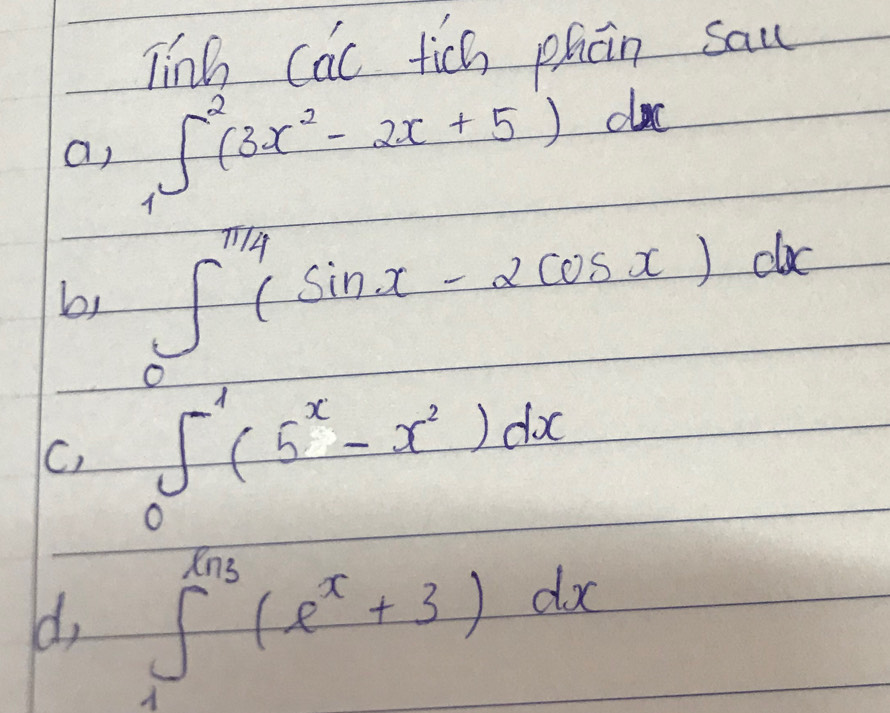 Tính các tích phân sau
a, ∫₁² (3x² - 2x + 5) dx
b, ∫₀^π/4 (sinx - 2cosx) dx
c, ∫₀¹ (5ˣ - x²) dx
d, ∫₁^ln3 (eˣ + 3) dx